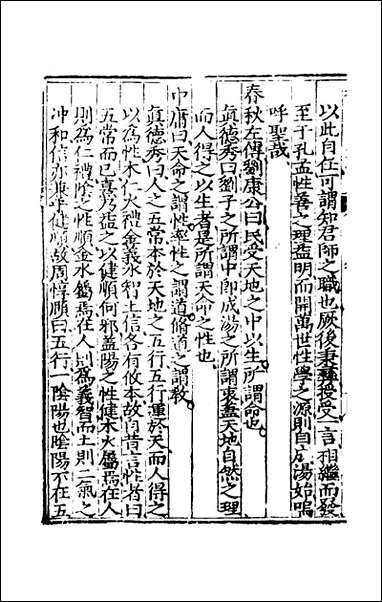 以此自任可謂知君師之職也厥後秉彝授受一言相繼而發
至于孔孟性善之理益明而開萬世性學之源則自成湯始嗚
呼聖哉
春秋左傳劉康公曰民受天地之中以生所謂命也
真德秀曰劉子之所謂中即成湯之所謂衷蓋天地自然之理
而人得之以生者是所謂天命之性也
中庸曰天命之謂性率性之謂道脩道之謂教
真德秀曰人之五常本於天地之五行五行運於天而人得之
以為性木仁火禮金義水智土信各有攸本故自昔言性者曰
五常而已真乃益之以健順何邪蓋陽之性健木火屬焉在人
則為仁禮陰之性順金水屬焉在人則為義智而土則二氣之
冲和信亦兼乎健順故周惇頤曰五行一陰陽也陰陽不在五